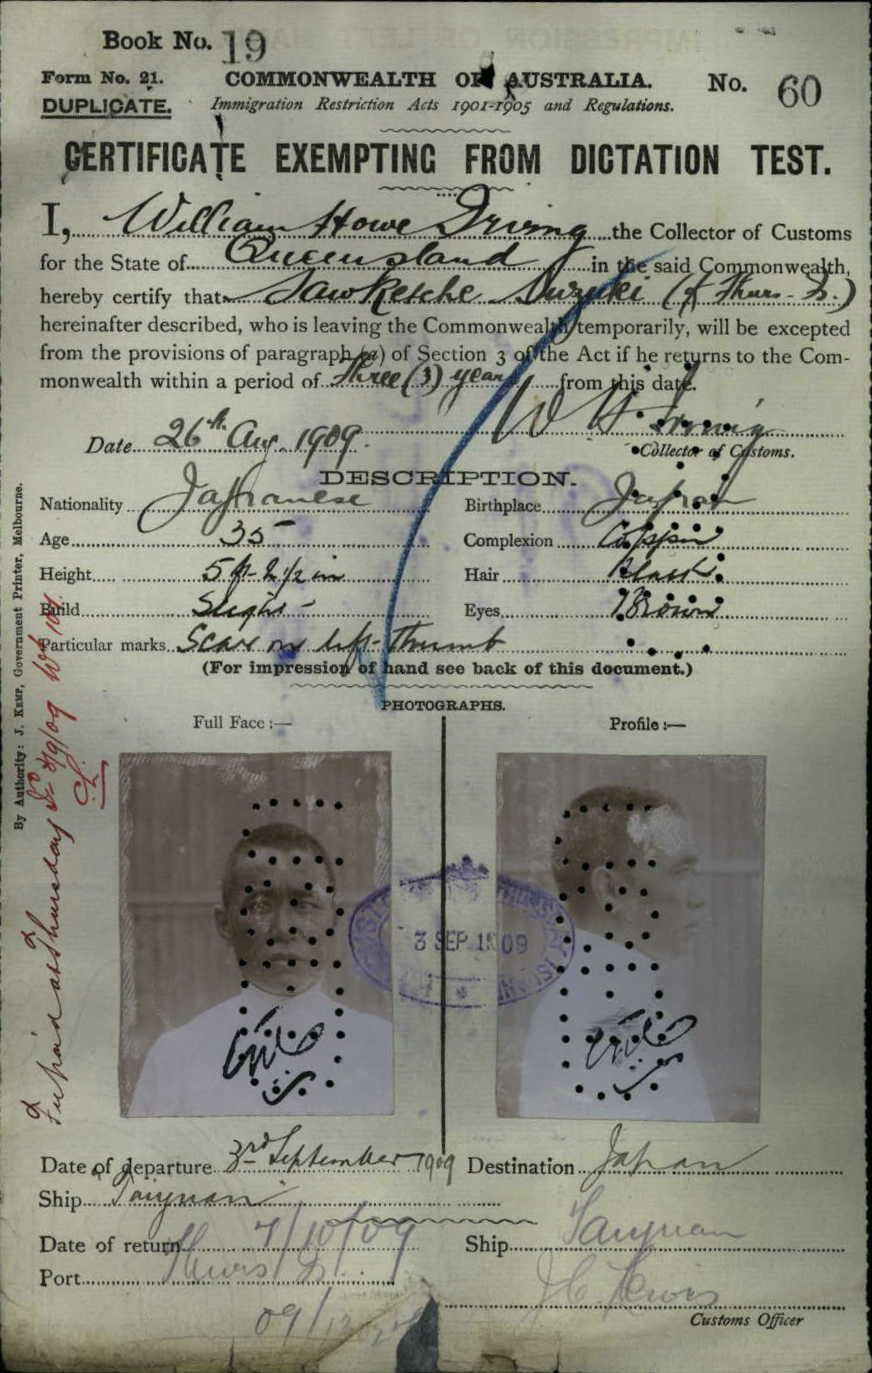 Book No. 19
Form No. 21. COMMONWEALTH OF AUSTRALIA. No. 60
DUPLICATE. Immigration Restriction Acts 1901-1905 and Regulations.
CERTIFICATE EXEMPTING FROM DICTATION TEST.
I, William Howe Irving the Collector of Customs
for the State of Queensland in the said Commonwealth,
hereby certify that Sawkesche Suzuki (of Thurs. Is.)
hereinafter described, who is leaving the Commonwealth temporarily, will be excepted
from the provisions of paragraph (a) of Section 3 of the Act if he returns to the Com-
monwealth within a period of Three (3) years from this date.
W H Irving
Date 26th Aug. 1909. Collector of Customs.
DESCRIPTION.
Nationality Japanese Birthplace Japan
Age 35 Complexion Copper
Height 5 ft 2 1/2 in Hair Black
Build Slight Eyes Brown
Particular marks Scar on left thumb
(For impression of hand see back of this document.)
PHOTOGRAPHS.
Full Face :— Profile :—
3 SEP. 1909
Date of departure 3rd September 1909 Destination Japan
Ship Taiyuan
Date of return 7/10/09 Ship Taiyuan
Port Thurs Is.
09/
Customs Officer
By Authority: J. Kemp, Government Printer, Melbourne.